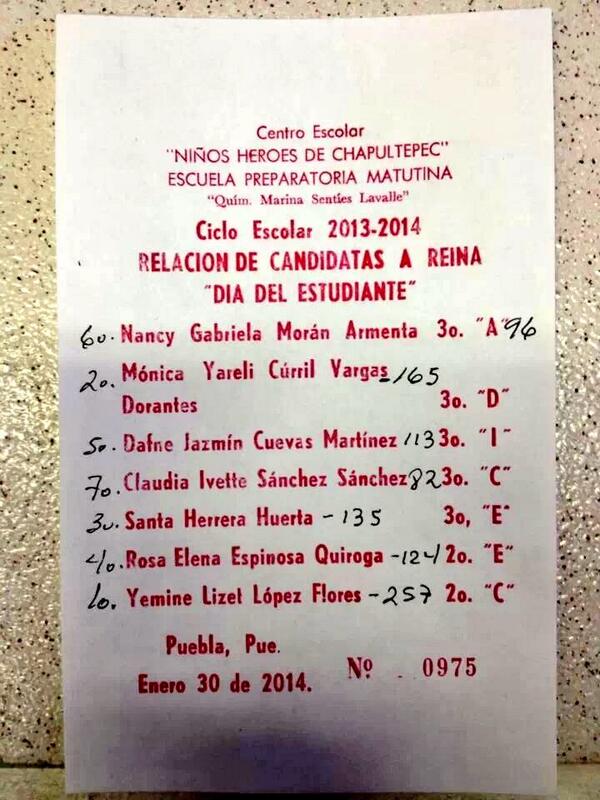 Centro Escolar
"NIÑOS HEROES DE CHAPULTEPEC"
ESCUELA PREPARATORIA MATUTINA
"Quím. Marina Sentíes Lavalle"
Ciclo Escolar 2013-2014
RELACION DE CANDIDATAS A REINA
"DIA DEL ESTUDIANTE"
6o. Nancy Gabriela Morán Armenta 3o. "A" 96
2o. Mónica Yareli Cúrril Vargas - 165
Dorantes 3o. "D"
5o. Dafne Jazmín Cuevas Martínez 113 3o. "I"
7o. Claudia Ivette Sánchez Sánchez 82 3o. "C"
3o. Santa Herrera Huerta - 135 3o, "E"
4o. Rosa Elena Espinosa Quiroga - 124 2o. "E"
1o. Yemine Lizet López Flores - 257 2o. "C"
Puebla, Pue.
Enero 30 de 2014. Nº 0975